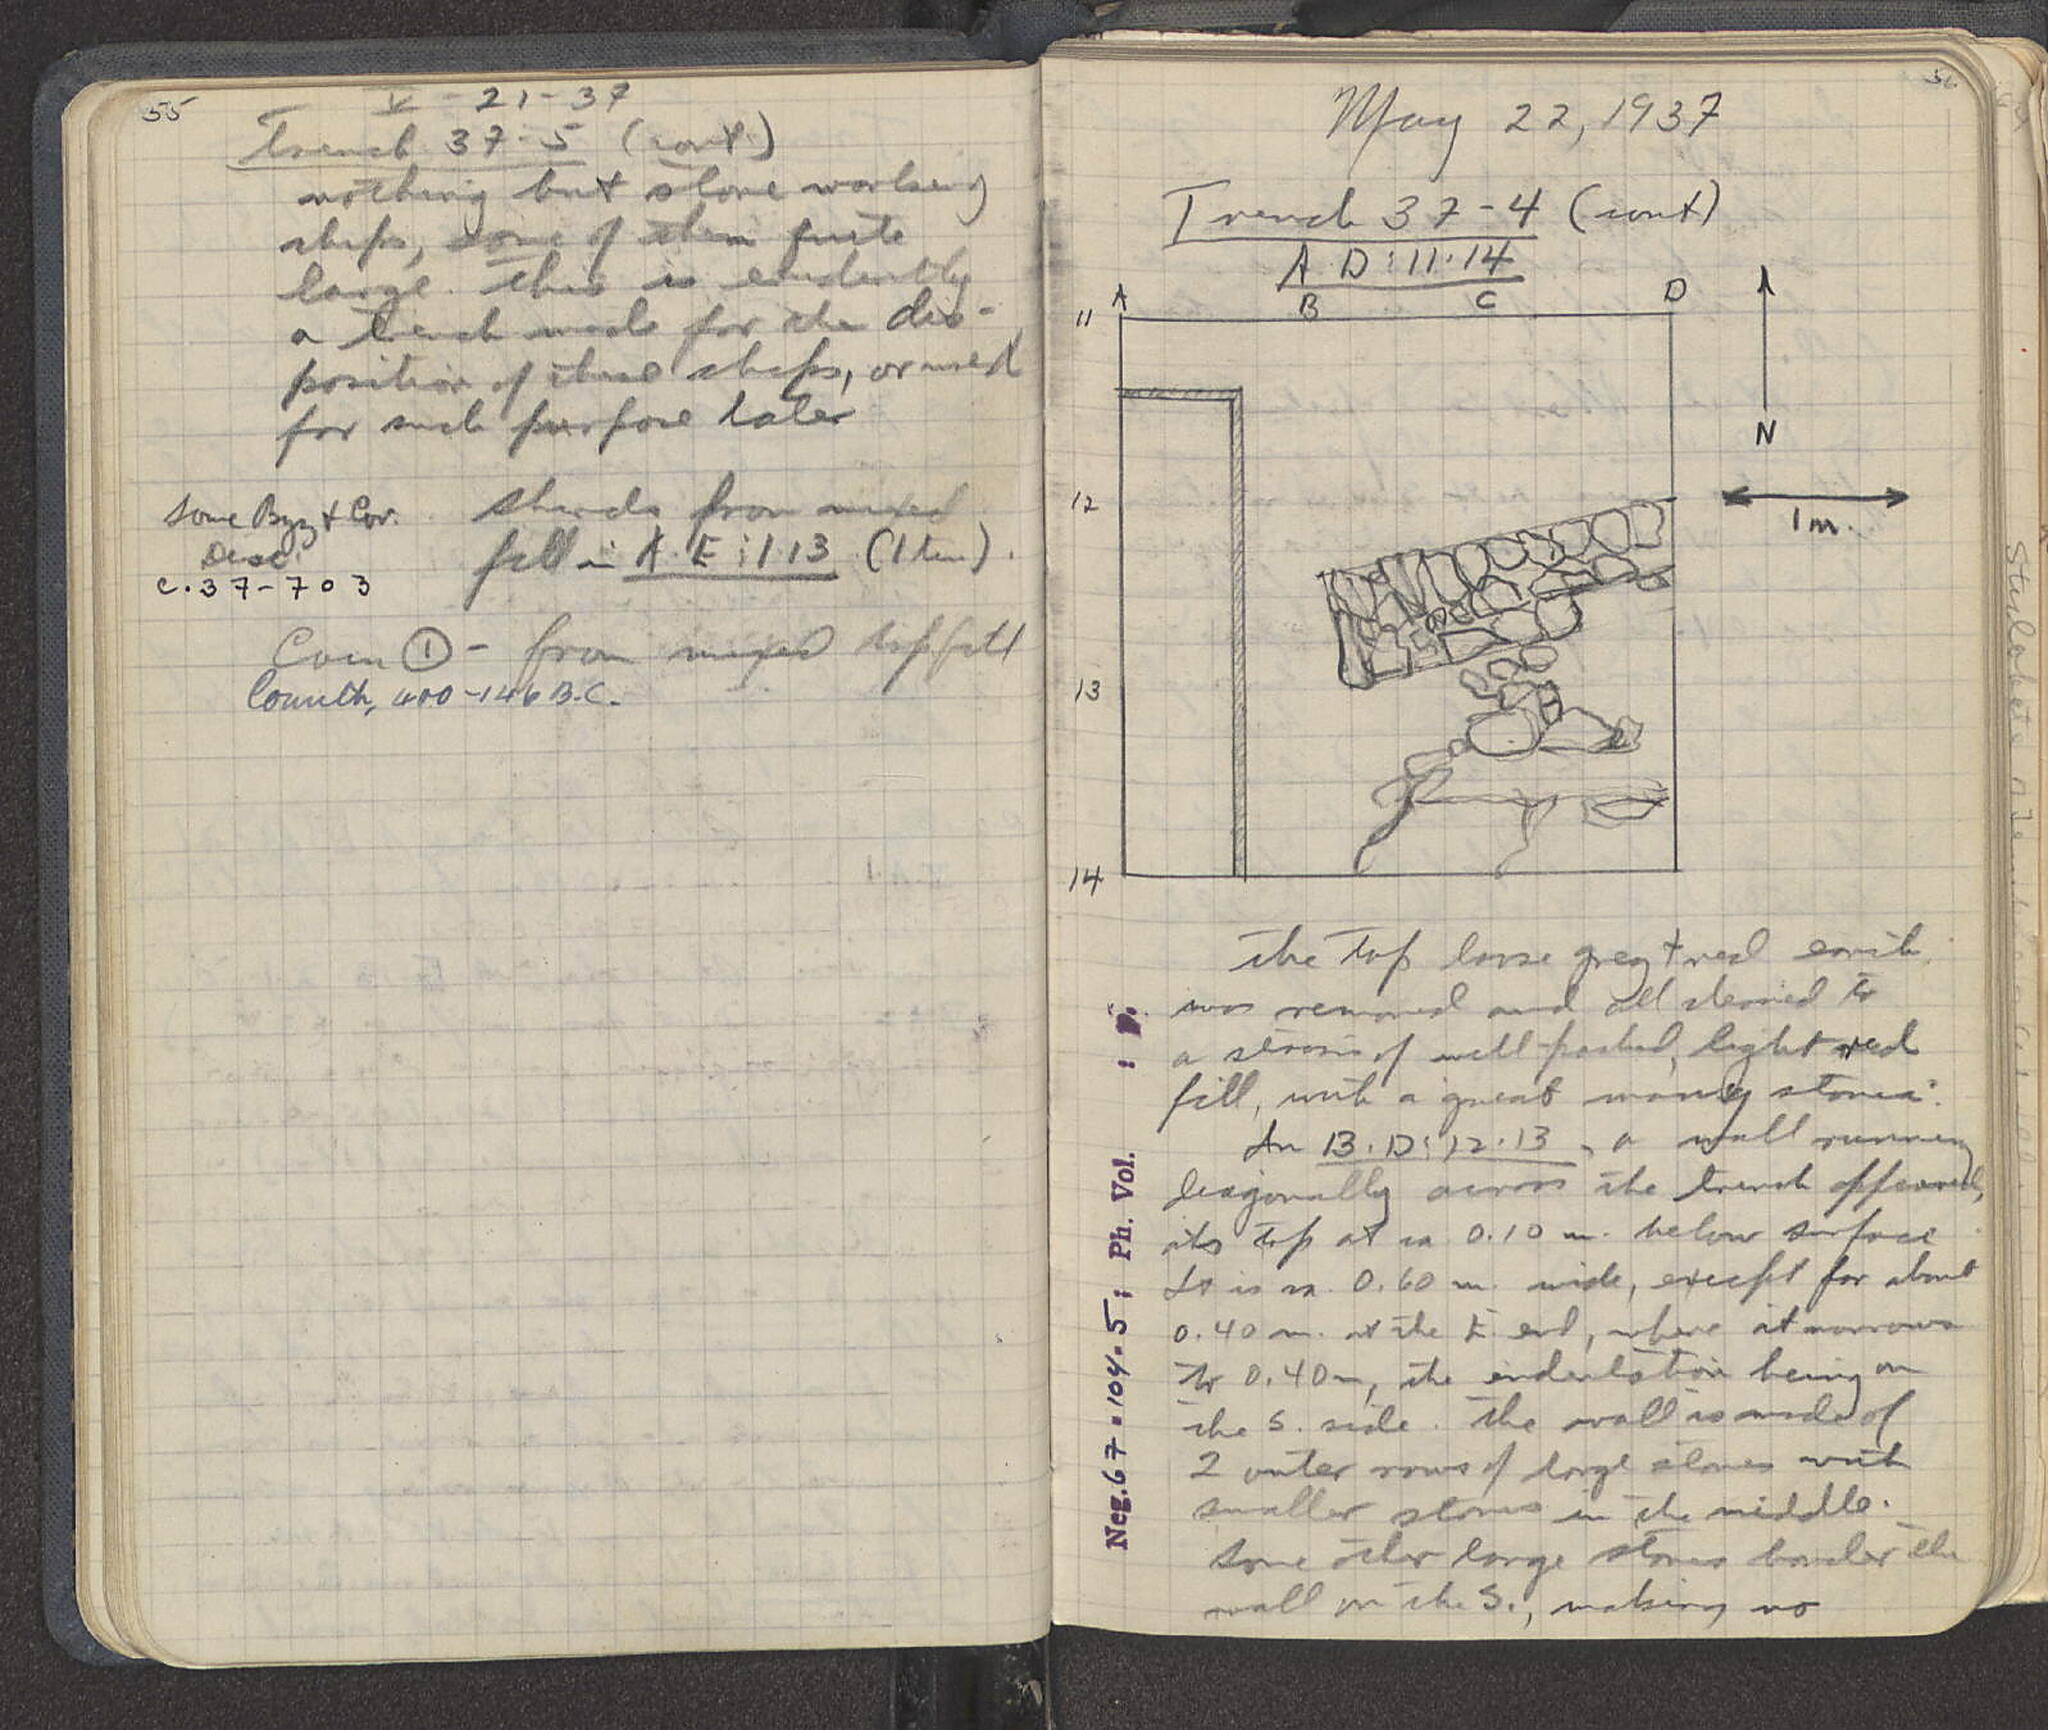 55
V - 21 - 37
Trench 37-5 (cont.)
nothing but stone working
chips, some of them quite
large. This is evidently
a trench made for the dis-
position of these chips, or used
for such purpose later
Some Byz + Cor.
Disc.
C. 37-703
Sherds from mixed
fill in A-E:1-13 (1 tin).
Coin ① - from mixed top fill
Corinth, 400-146 B.C.
56
May 22, 1937
Trench 37-4 (cont)
A-D:11-14
A B C D
11
12
13
14
N
1 m.
The top loose grey + red earth
was removed and all cleaned to
a stratum of well-packed, light red
fill, with a great many stones.
In B-D:12-13, a wall running
diagonally across the trench appeared,
its top at ca 0.10 m. below surface
It is ca. 0.60 m. wide, except for about
0.40 m. at the E end, where it narrows
to 0.40 m, the indentation being on
the S. side. The wall is made of
2 outer rows of large stones with
smaller stones in the middle.
Some other large stones border the
wall on the S., making no
Neg. 67-104-5; Ph. Vol. : P.